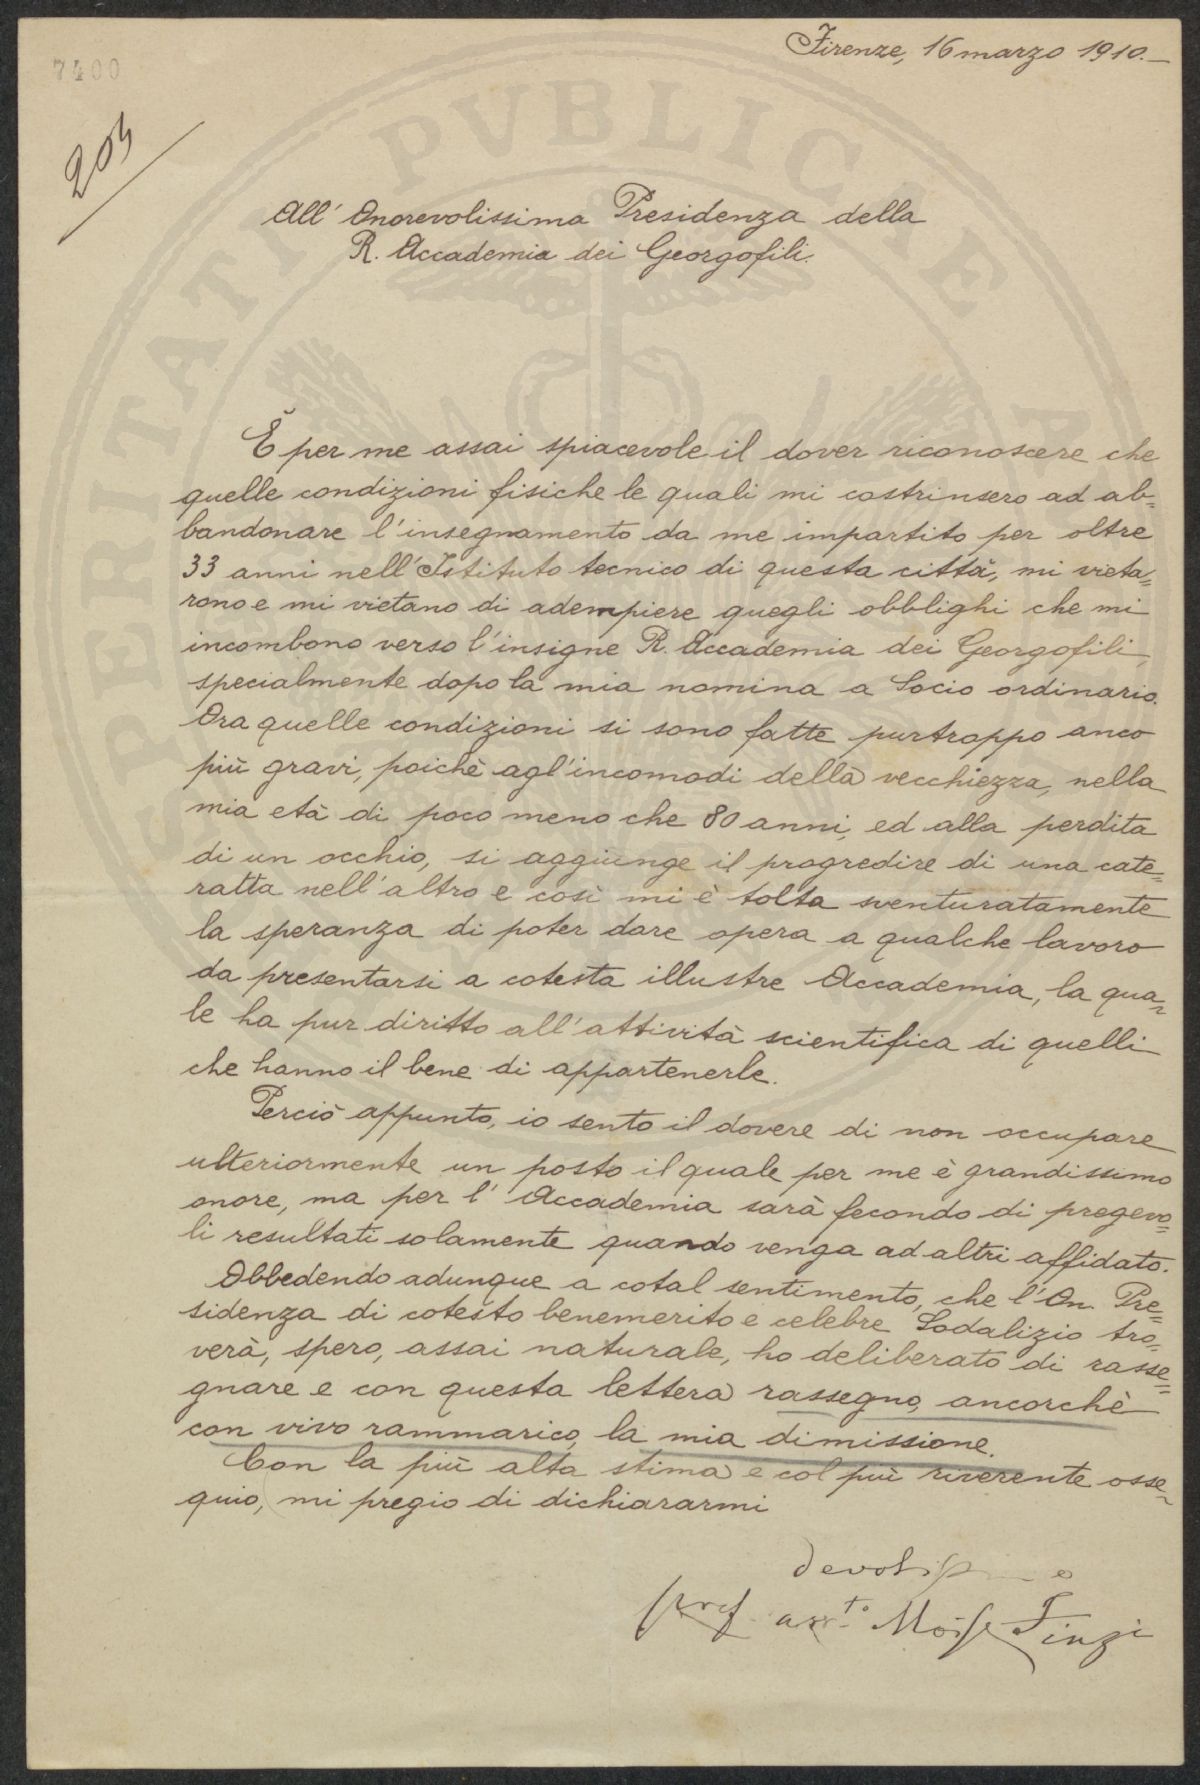 Firenze, 16 marzo 1910.
7400
203
PROSPERITATI PVBLICAE A
All' Onorevolissima Presidenza della
R. Accademia dei Georgofili.
È per me assai spiacevole il dover riconoscere che
quelle condizioni fisiche le quali mi costrinsero ad ab=
bandonare l'insegnamento da me impartito per oltre
33 anni nell'Istituto tecnico di questa città, mi vieta=
rono e mi vietano di adempiere quegli obblighi che mi
incombono verso l'insigne R. Accademia dei Georgofili,
specialmente dopo la mia nomina a Socio ordinario.
Ora quelle condizioni si sono fatte purtroppo anco
più gravi, poichè agl'incomodi della vecchiezza, nella
mia età di poco meno che 80 anni, ed alla perdita
di un occhio, si aggiunge il progredire di una cate=
ratta nell'altro e così mi è tolta sventuratamente
la speranza di poter dare opera a qualche lavoro
da presentarsi a cotesta illustre Accademia, la qua=
le ha pur diritto all'attività scientifica di quelli
che hanno il bene di appartenerle.
Perciò appunto, io sento il dovere di non occupare
ulteriormente un posto il quale per me è grandissimo
onore, ma per l'Accademia sarà fecondo di pregevo=
li resultati solamente quando venga ad altri affidato.
Obbedendo adunque a cotal sentimento, che l'On. Pre=
sidenza di cotesto benemerito e celebre Sodalizio tro=
verà, spero, assai naturale, ho deliberato di rasse=
gnare e con questa lettera rassegno, ancorchè
con vivo rammarico, la mia dimissione.
Con la più alta stima e col più riverente osse=
quio, mi pregio di dichiararmi
devotissimo
prof. Moise Finzi